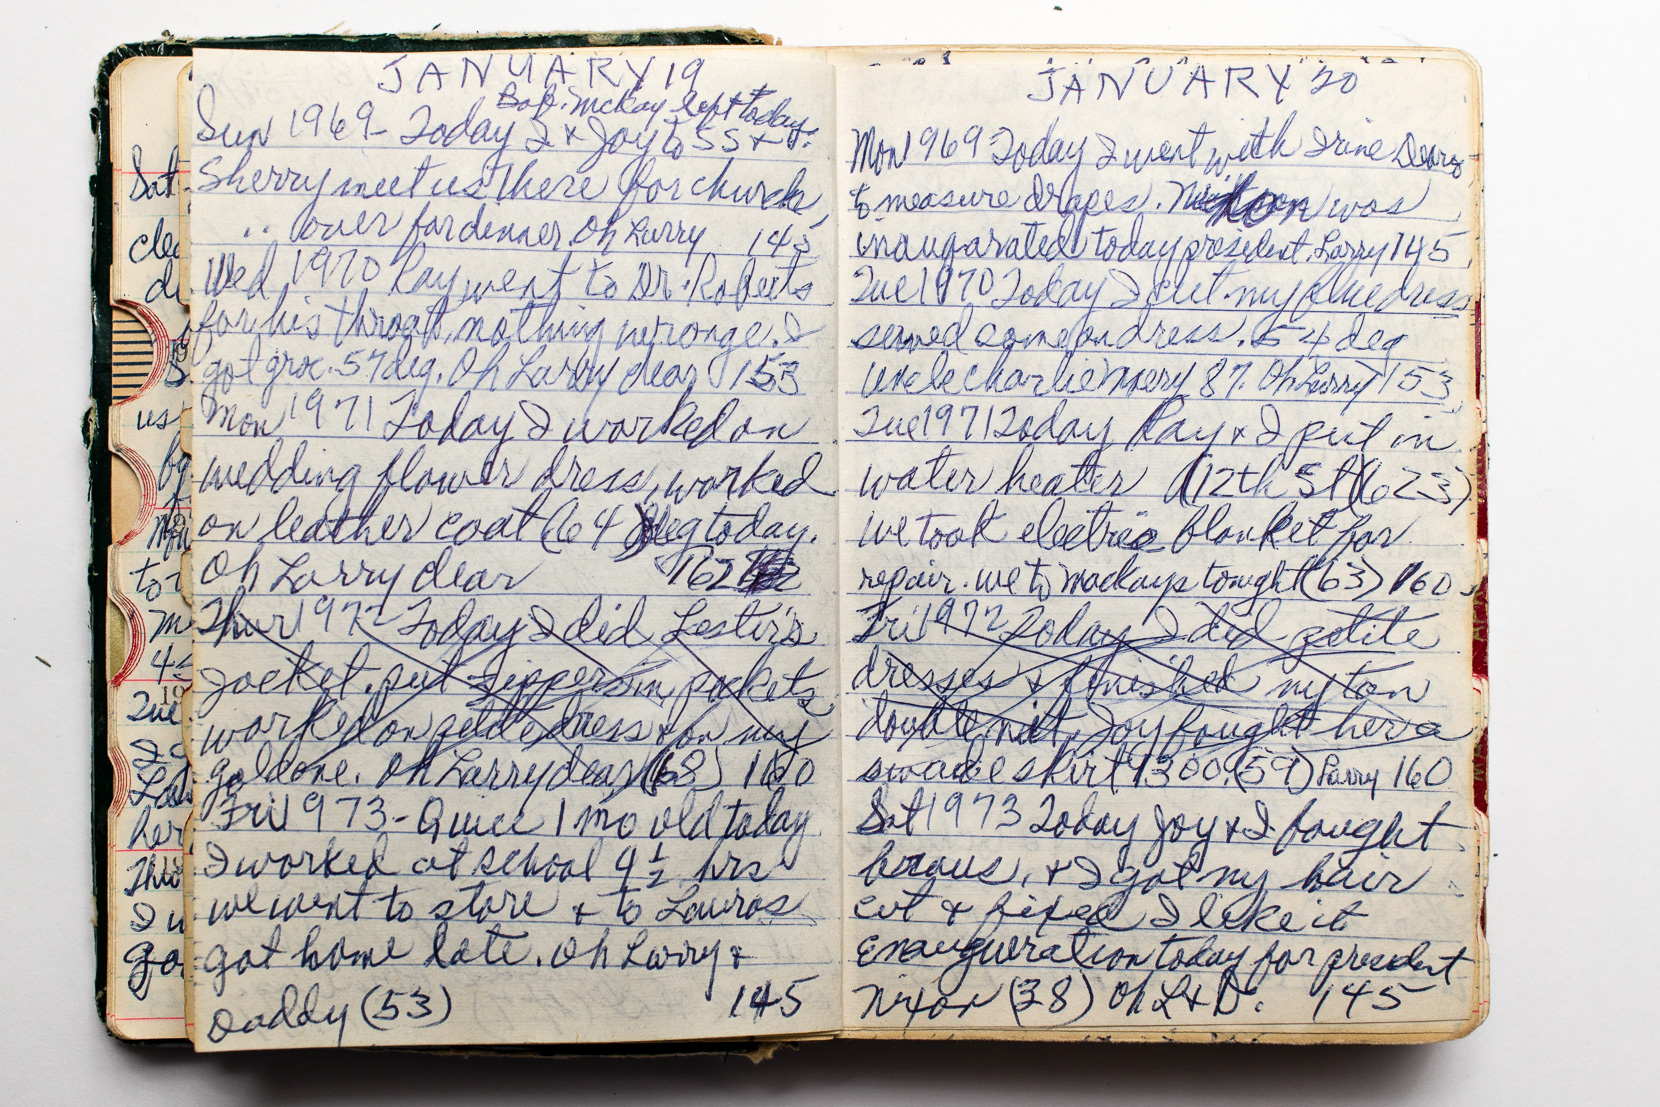 JANUARY 19
Bob. McKay left today.
Sun 1969 - Today I & Joy to SS &
Sherry meet us there for church,
" over for dinner. Oh Larry 145
Wed 1970 Ray went to Dr. Roberts
for his throat, nothing wronge. I
got groc. 57 deg. Oh Larry dear 153
Mon 1971 Today I worked on
wedding flower dress, worked
on leather coat (64) deg today.
Oh Larry dear 162
Thur 1972 Today I did Lester's
jacket. put zippers in pockets
worked on petite dress & on my
gold one. Oh Larry dear (68) 160
Fri 1973 - Quice 1 mo old today
I worked at school 4 1/2 hrs
we went to store & to Lauras
got home late. Oh Larry &
Daddy (53) 145
JANUARY 20
Mon 1969 Today I went with Irine
to measure drapes. Nixon was
inaugarated today president. Larry 145
Tue 1970 Today I cut my blue dress
sewed some on dress. 54 deg
Uncle Charlie Mary 87. Oh Larry 153
Tue 1971 Today Ray & I put in
water heater (12th St) (623)
we took electric blanket for
repair. we to Mackays tonight (63) 160
Fri 1972 Today I did petite
dresses & finished my tan
double nit, Joy bought her a
swade skirt 1300. (59) Larry 160
Sat 1973 Today Joy & I bought
& I got my hair
cut & fixed I like it
Enauguration today for president
Nixon (38) Oh L & D. 145
Sat
clea
us
to
M
Tue
her
I w